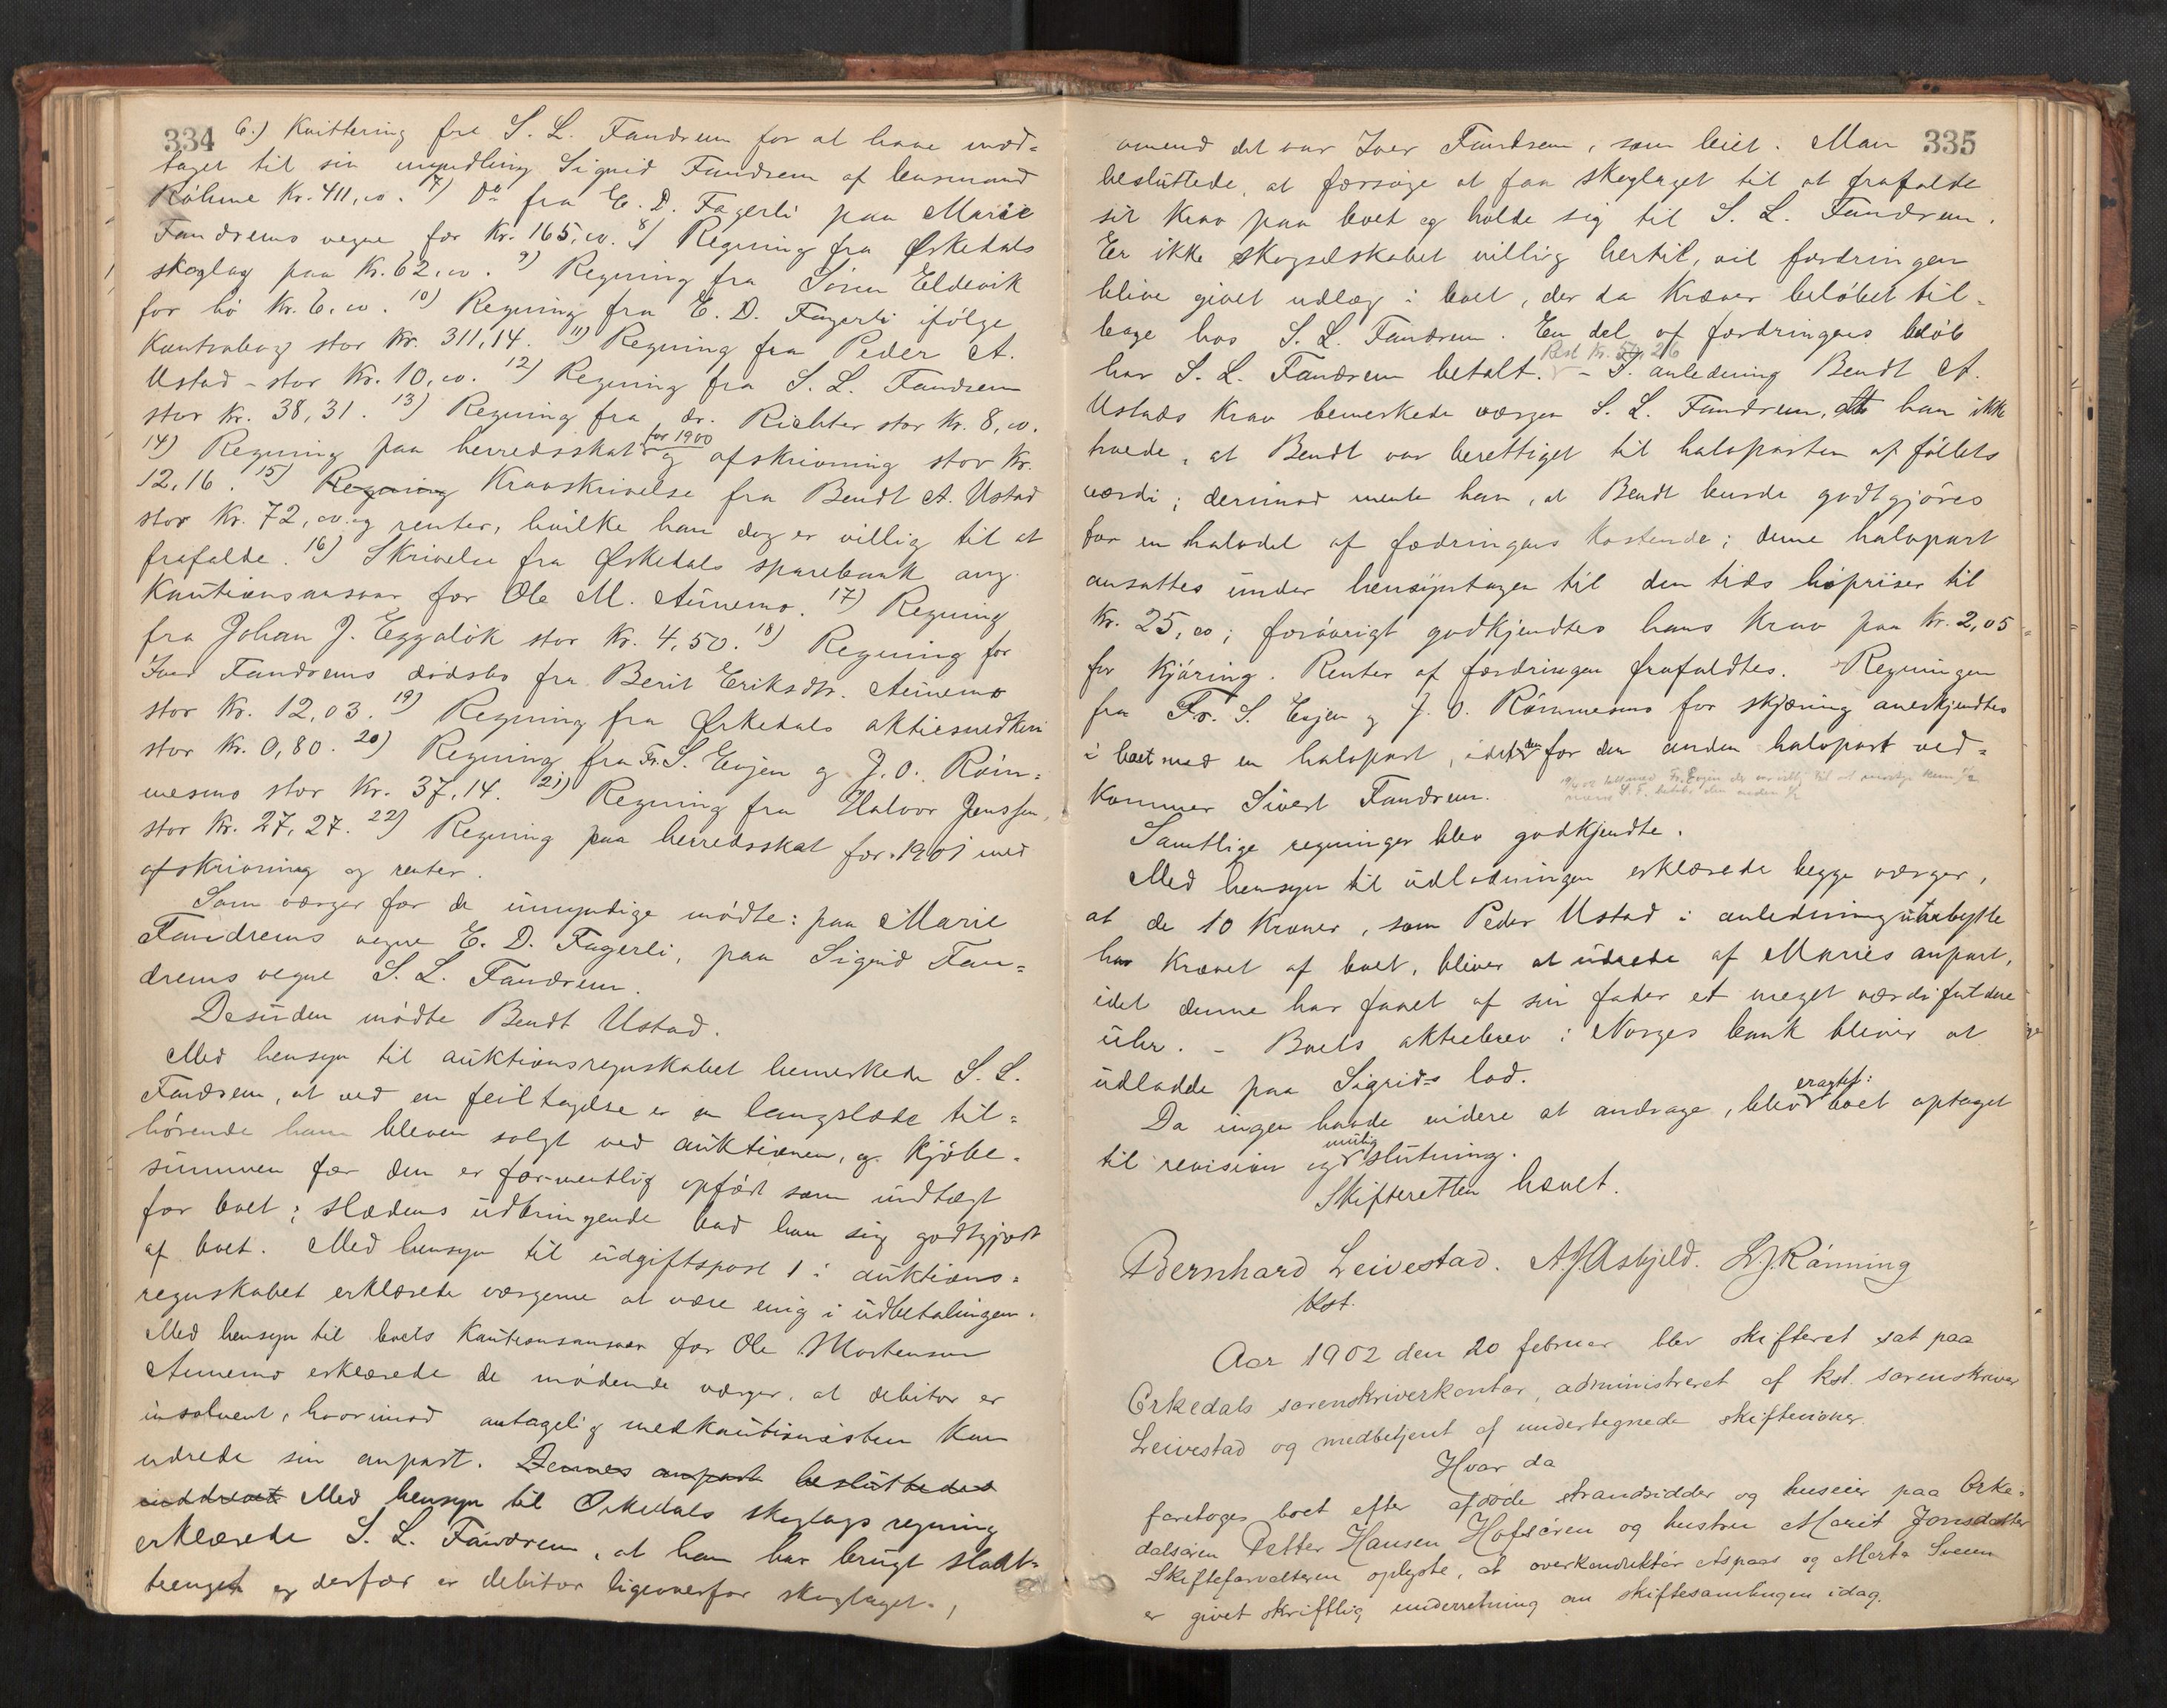 334
6.) Kvittering fra S. L. Fandrem for at have mod-
taget til sin myndling Sigrid Fandrem af lensmand
Røhme Kr. 411,00. 7) Do fra E. D. Fagerli paa Marie
Fandrems vegne for Kr. 165,00. 8) Regning fra Ørkedals
skoglag paa Kr. 62,00. 9) Regning fra Sivert Eldevik
for hø Kr. 6,00. 10) Regning fra E. D. Fagerli ifølge
Kontrabog stor Kr. 311,14. 11) Regning fra Peder A.
Ustad - stor Kr. 10,00. 12) Regning fra S. L. Fandrem
stor Kr. 38,31. 13) Regning fra dr. Richter stor Kr. 8,00.
14) Regning paa herredsskat for 1900 og afskrivning stor Kr.
12,16. 15) Regning Kravskrivelse fra Bendt A. Ustad
stor Kr. 72,00 og renter, hvilke han dog er villig til at
frafalde. 16) Skrivelse fra Ørkedals sparebank ang.
Kautionsansvar for Ole M. Aunemo. 17) Regning
fra Johan J. Eggaløk stor Kr. 4,50. 18) Regning for
Iver Fandrems dødsbo fra Berit Eriksdtr. Aunemo
stor Kr. 12,03. 19) Regning fra Ørkedals aktiesnedkeri
stor Kr. 0,80. 20) Regning fra Fr. S. Evjen og J. O. Røm-
mesmo stor Kr. 37,14. 21) Regning fra Halvor Jenssen,
stor Kr. 27,27. 22) Regning paa herredsskat for 1901 med
afskrivning og renter.
Som værger for de umyndige mødte: paa Marie
Fandrems vegne E. D. Fagerli, paa Sigrid Fan-
drems vegne S. L. Fandrem.
Desuden mødte Bendt Ustad.
Med hensyn til auktionsregnskabet bemerkede S. L.
Fandrem, at ved en feiltagelse er en langslæde til-
hørende ham bleven solgt ved auktionen, og kjøbe-
summen for den er formentlig opført som indtægt
for boet; slædens udbringende bad han sig godtgjort
af boet. Med hensyn til udgiftspost 1 i auktions-
regnskabet erklærede værgerne at være enig i udbetalingen.
Med hensyn til boets Kautionsansvar for Ole Mortensen
Aunemo erklærede de mødende værger, at debitor er
insolvent, hvorimod antagelig medkautionisten kan
udrede sin anpart. Dennes anpart besluttedes
inddrevet Med hensyn til Orkedals skoglags regning
erklærede S. L. Fandrem, at han har brugt slaat-
teenget og derfor er debitor ligeoverfor skoglaget,
335
omend det var Iver Fandrem, som leiet. Man
besluttede, at forsøge at faa skoglaget til at frafalde
sit krav paa boet og holde sig til S. L. Fandrem.
Er ikke skogselskabet villig hertil, vil fordringen
blive givet udlæg i boet, der da kræver beløbet til-
bage hos S. L. Fandrem. En del af fordringens beløb
Rest Kr. 54,26
har S. L. Fandrem betalt. - I anledning Bendt A.
Ustads krav bemerkede værgen S. L. Fandrem, at han ikke
troede, at Bendt var berettiget til halvparten af føllets
værdi; derimod mente han, at Bendt burde godtgjøres
for en halvdel af fodringens kostende; denne halvpart
ansattes under hensyntagen til den tids høpriser til
Kr. 25,00; forøvrigt godkjendtes hans krav paa Kr. 2,05
for kjøring. Renter af fordringen frafaldtes. Regningen
fra Fr. S. Evjen og J. O. Rømmesmo for skjæring anerkjendtes
i boet med en halvpart, idet den for den anden halvpart ved-
kommer Sivert Fandrem.
Samtlige regninger blev godkjendte.
Med hensyn til udlodningen erklærede begge værger,
at de 10 kroner, som Peder Ustad i anledning uhrbytte
har krævet af boet, bliver at udrede af Maries anpart,
idet denne har faaet af sin fader et meget værdifuldere
uhr. - Boets aktiebrev i Norges bank bliver at
udlodde paa Sigrids lod.
Da ingen havde videre at andrage, blev eragtet: boet optaget
til revision og mulig slutning.
Skifteretten hævet.
Bernhard Leivestad. A. J. Asbjeld. L. J. Rønning
Kst.
Aar 1902 den 20 februar blev skifteret sat paa
Orkedals sorenskriverkontor, administreret af kst. sorenskriver
Leivestad og medbetjent af undertegnede skiftevidner.
Hvor da
foretoges boet efter afdøde strandsidder og huseier paa Orke-
dalsøren Petter Hansen Hofsøren og hustru Marit Jonsdatter
Skifteforvalteren oplyste, at overkonduktør Aspaas og Marta Sveen
er givet skriftlig underretning om skiftesamlingen idag.